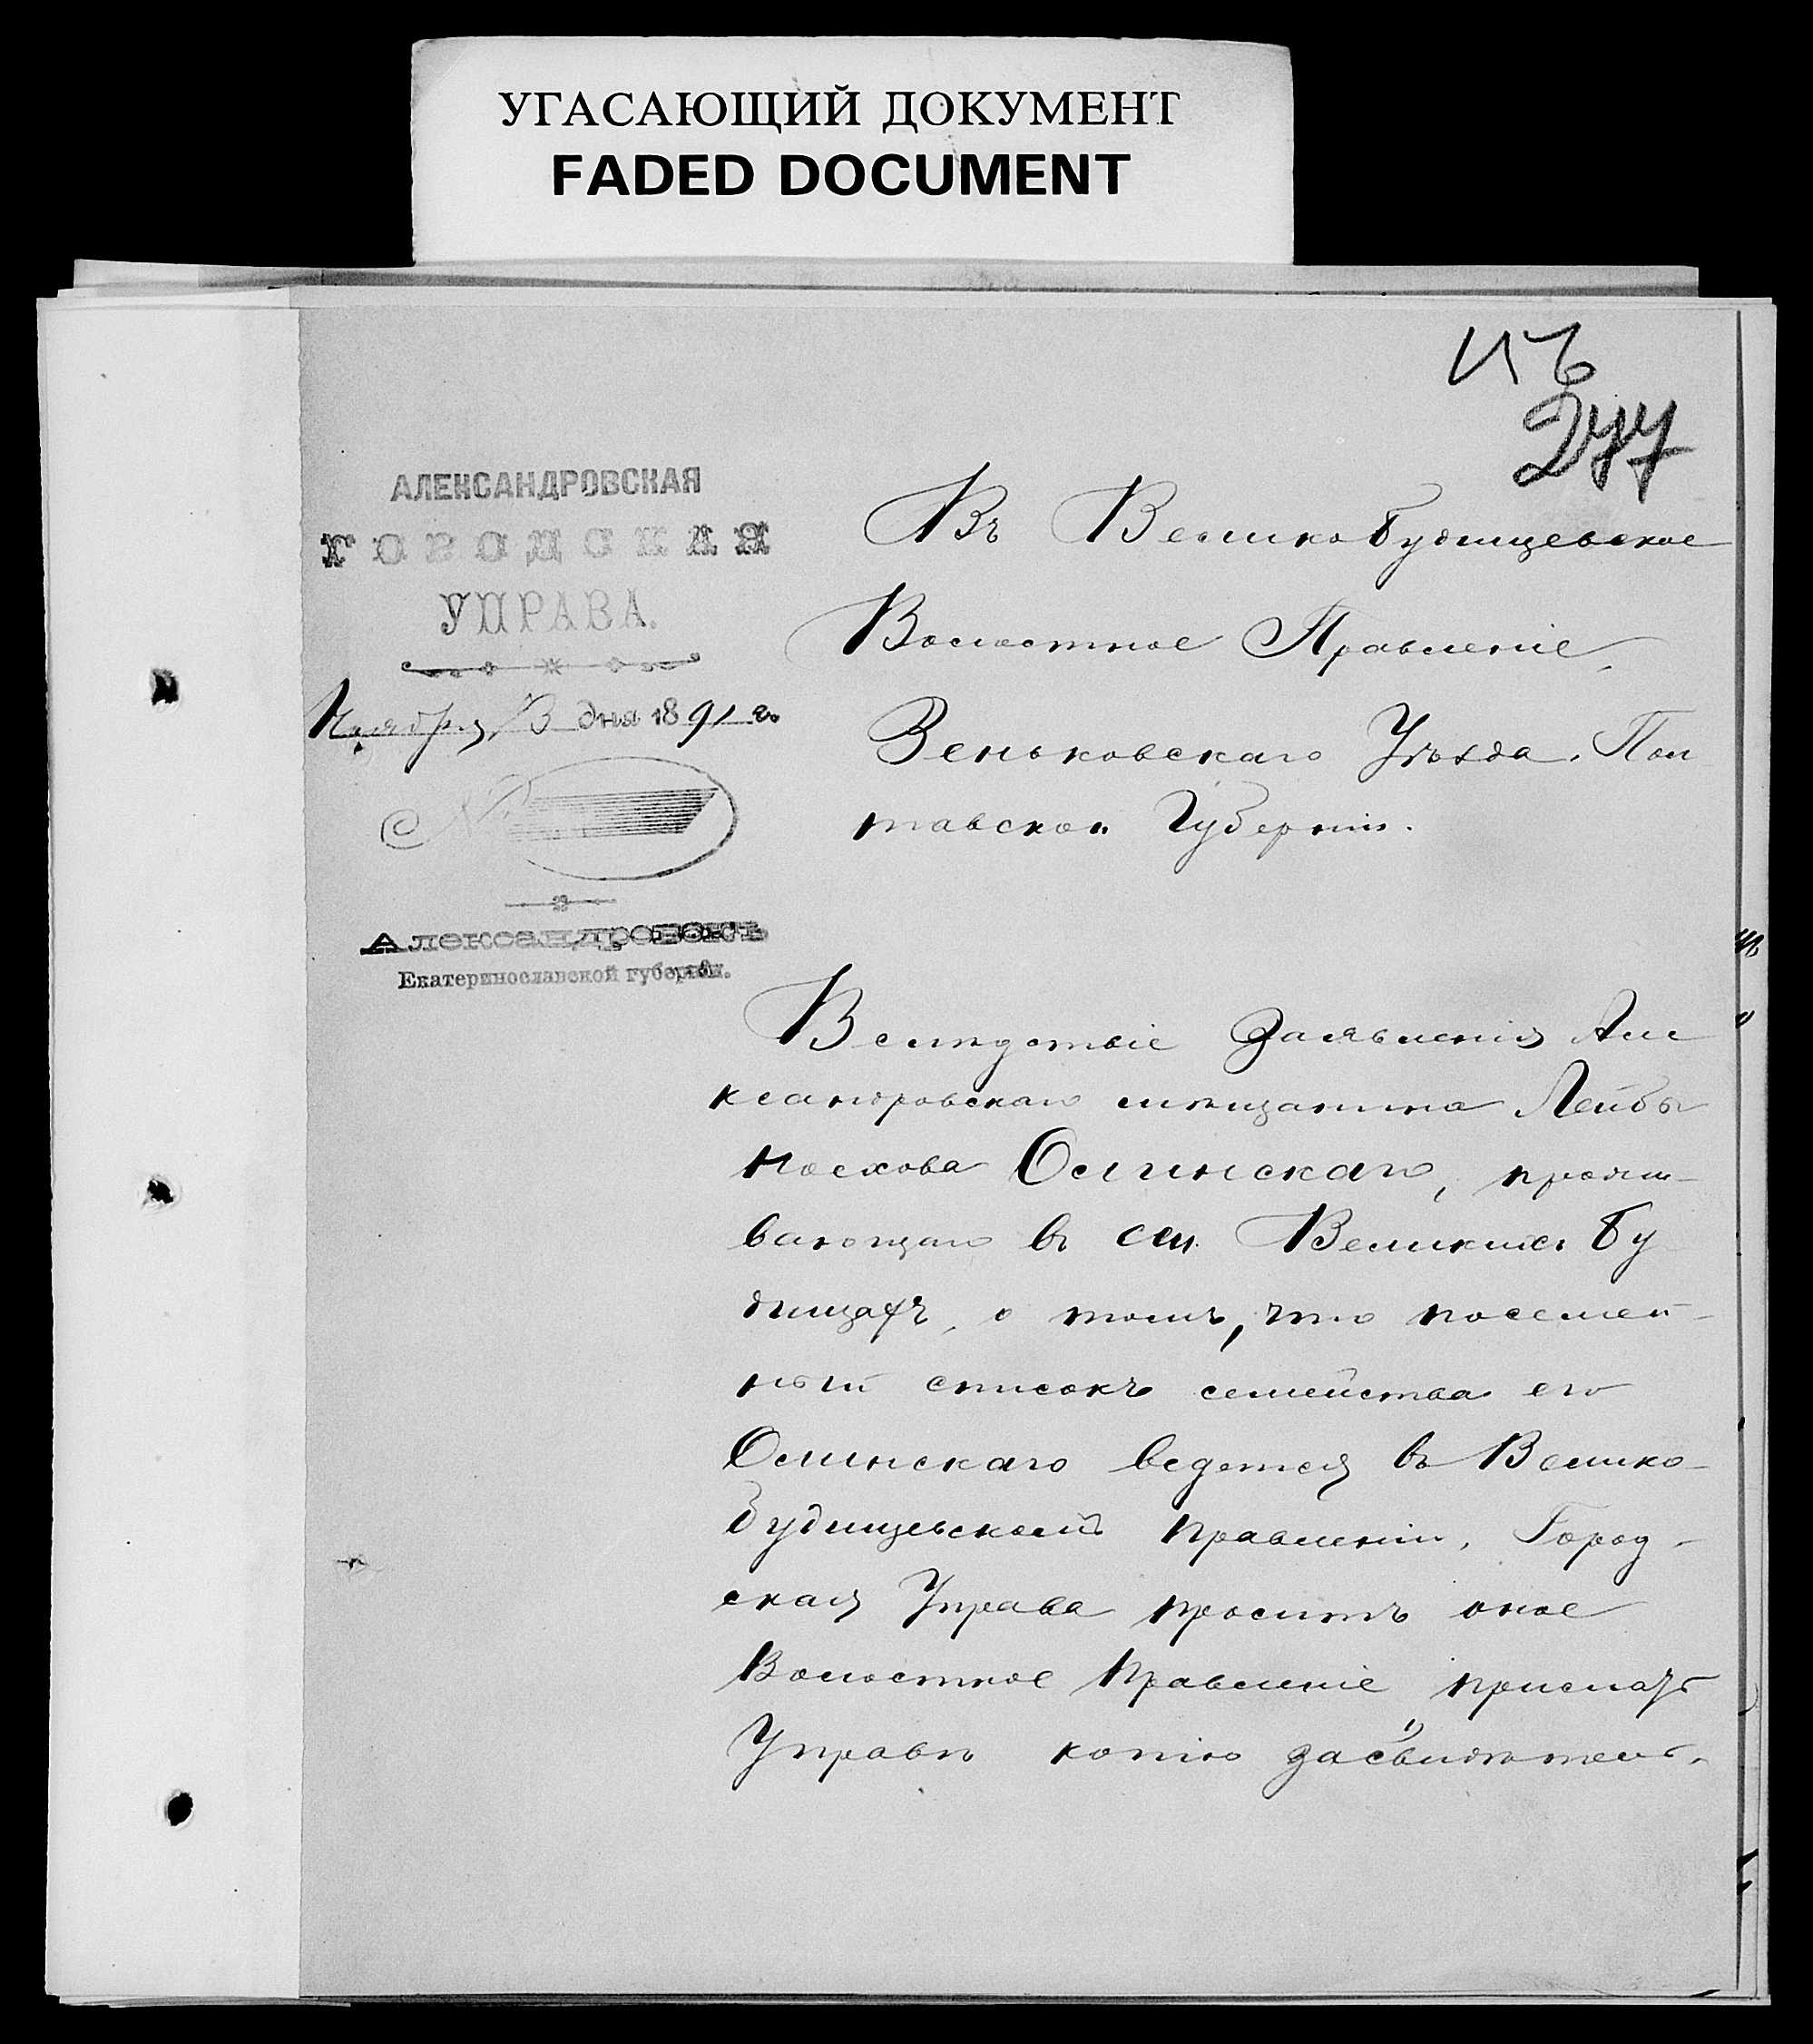 УГАСАЮЩИЙ ДОКУМЕНТ
FADED DOCUMENT
277
АЛЕКСАНДРОВСКАЯ
ГОРОДСКАЯ
УПРАВА.
Ноября 13 дня 1891 г.
№
Александровскъ
Екатеринославской губерніи.
Въ Великобудищевское
Волостное Правленіе,
Зеньковскаго Уѣзда. Пол
тавской Губерніи.
Вслѣдствіе Заявленія Але
ксандровскаго мѣщанина Лейбы
Носхова Ослинскаго, прожи-
вающаго въ сел. Великихъ Бу
дищахъ, о томъ, что посемей-
ный списокъ семейства его
Ослинскаго ведется въ Велико-
будищевскомъ правленіи, Город-
ская Управа проситъ оное
Волостное Правленіе прислать
Управѣ копію засвидѣтель-